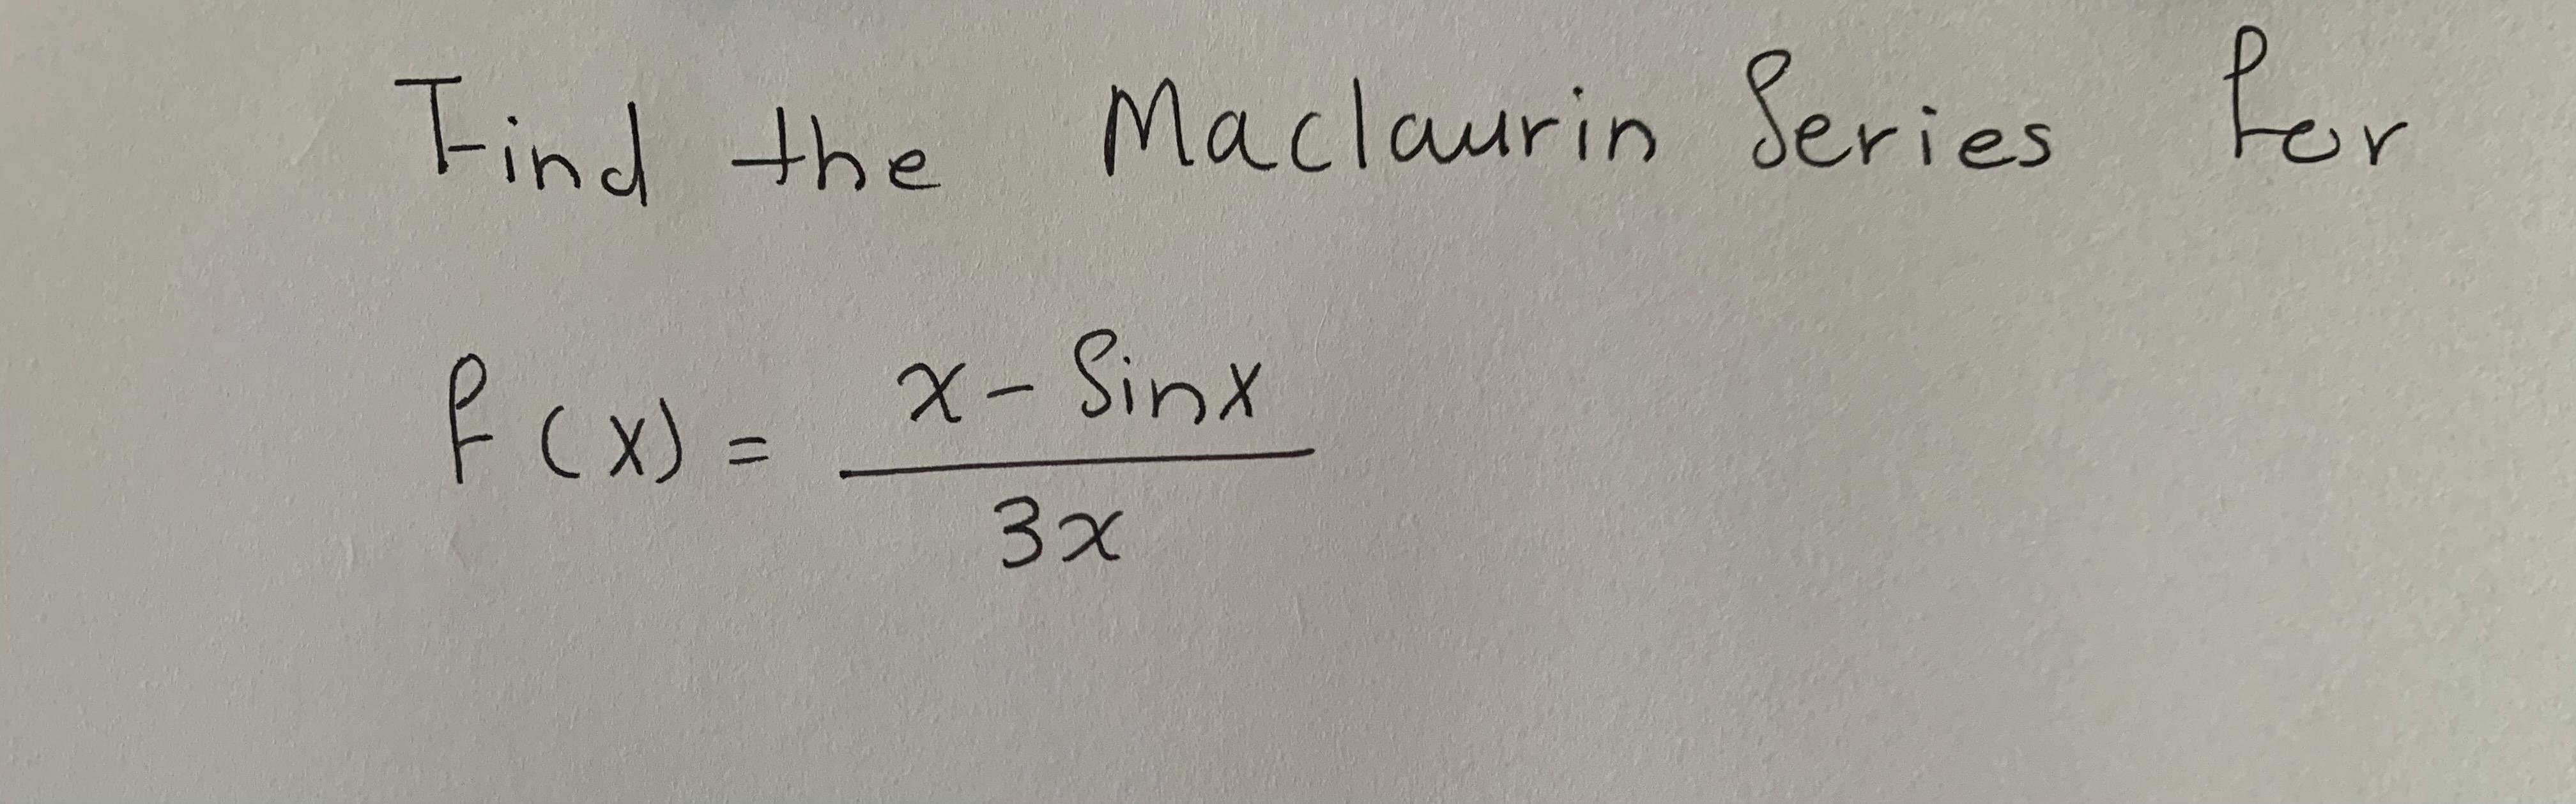 Find the Maclaurin Series for
f(x) = x - Sinx / 3x